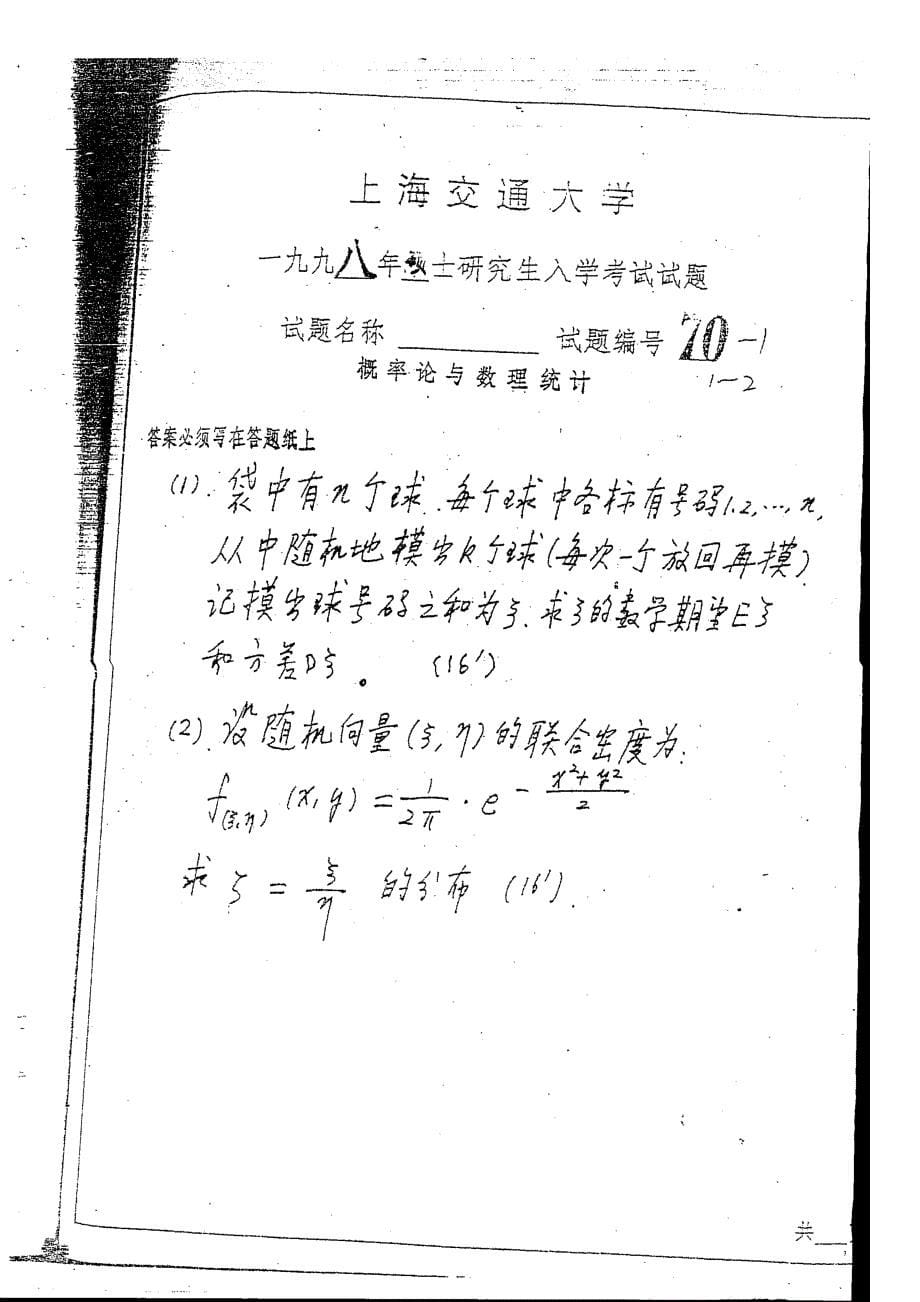 上海交通大学
一九九八年硕士研究生入学考试试题
试题名称 ________ 试题编号 70-1
概率论与数理统计 1-2
答案必须写在答题纸上
(1). 袋中有n个球. 每个球中各标有号码1.2,…,n,
从中随机地模出k个球(每次一个放回再摸)
记摸出球号码之和为ξ. 求ξ的数学期望Eξ
和方差Dξ。 (16′)
(2). 设随机向量(ξ,η)的联合密度为:
f_{(ξ,η)} (x,y) = \frac{1}{2π} · e^{-\frac{x^2+y^2}{2}}
求 ζ = \frac{ξ}{η} 的分布 (16′).
共___